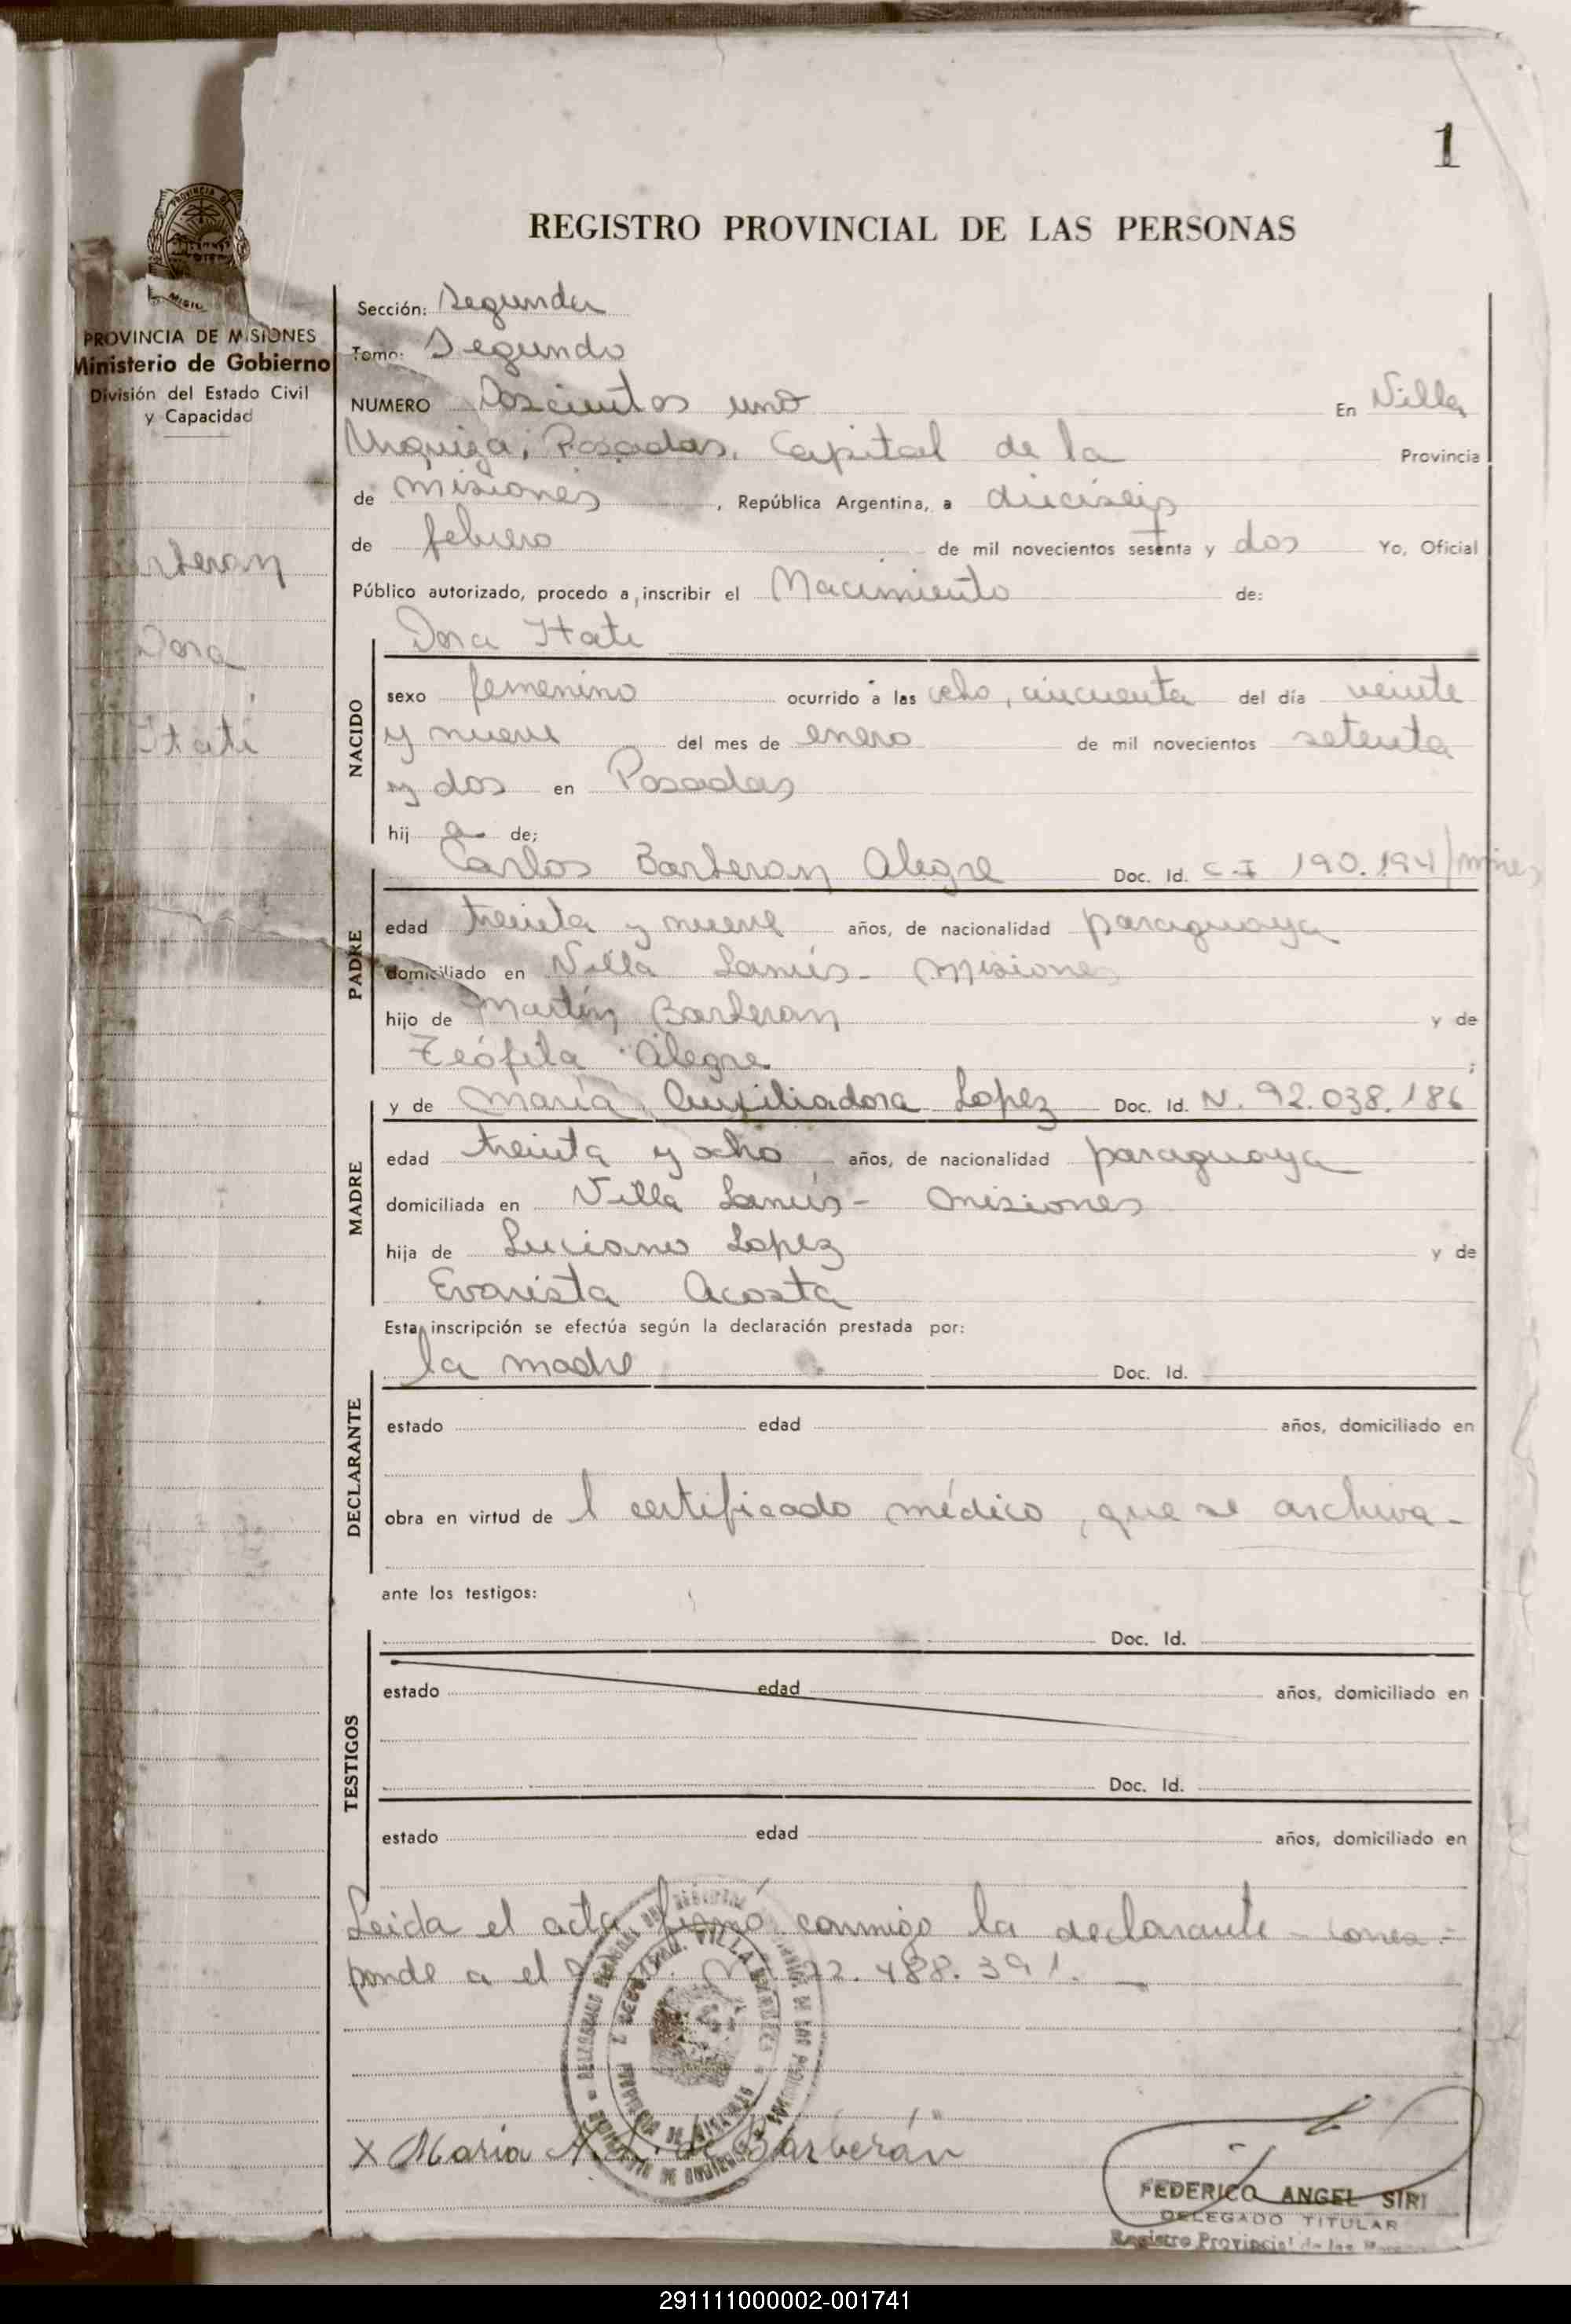 1
REGISTRO PROVINCIAL DE LAS PERSONAS
PROVINCIA DE MISIONES
Ministerio de Gobierno
División del Estado Civil
y Capacidad
Dora
Itatí
Sección: Segunda
Tomo: Segundo
NUMERO Doscientos uno En Villa
Urquiza, Posadas, Capital de la Provincia
de Misiones, República Argentina, a dieciseis
de febrero de mil novecientos sesenta y dos Yo, Oficial
Público autorizado, procedo a inscribir el Nacimiento de:
Dora Itati
NACIDO
sexo femenino ocurrido a las ocho, cincuenta del día veinte
y nueve del mes de enero de mil novecientos setenta
y dos en Posadas
hij a de;
Carlos Barberan Alegre Doc. Id. C.I 190.194/mnes
PADRE
edad treinta y nueve años, de nacionalidad paraguaya
domiciliado en Villa Lanús - Misiones
hijo de Martín Barberan y de
Teófila Alegre ;
y de María Auxiliadora Lopez Doc. Id. N. 92.038.186
MADRE
edad treinta y ocho años, de nacionalidad paraguaya
domiciliada en Villa Lanús - Misiones
hija de Luciano Lopez y de
Evarista Acosta
Esta inscripción se efectúa según la declaración prestada por:
la madre Doc. Id.
DECLARANTE
estado edad años, domiciliado en
obra en virtud de l certificado médico, que se archiva -
ante los testigos:
Doc. Id.
TESTIGOS
estado edad años, domiciliado en
Doc. Id.
estado edad años, domiciliado en
Leida el acta firmó conmigo la declarante - corres=
ponde a el 92.488.391. -
X María A. L. de Barberán
FEDERICO ANGEL SIRI
DELEGADO TITULAR
Registro Provincial de las
291111000002-001741